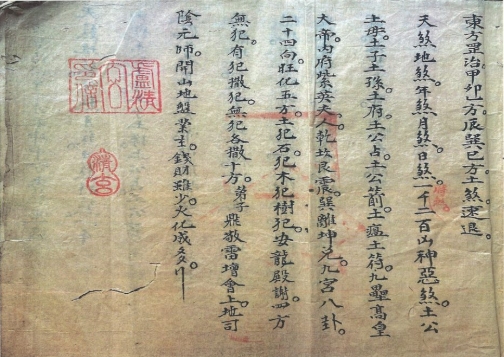 東方罡治甲卯乙方。辰巽巳方。土煞速退。
天煞地煞年煞月煞日煞一千二百凶神惡煞土公
土母土子土孫土府土公占土公箭土瘟土符九壘高皇
大帝內府紫英夫人乾坎艮震巽離坤兌九宮八卦。
二十四向旺化五方土犯石犯木犯樹犯安龍殿謝四方
無犯有犯撒犯無犯各撒十方。弟子鼎敬雷壇會上
陰元師開山地盤業主。錢財雖少火化成多